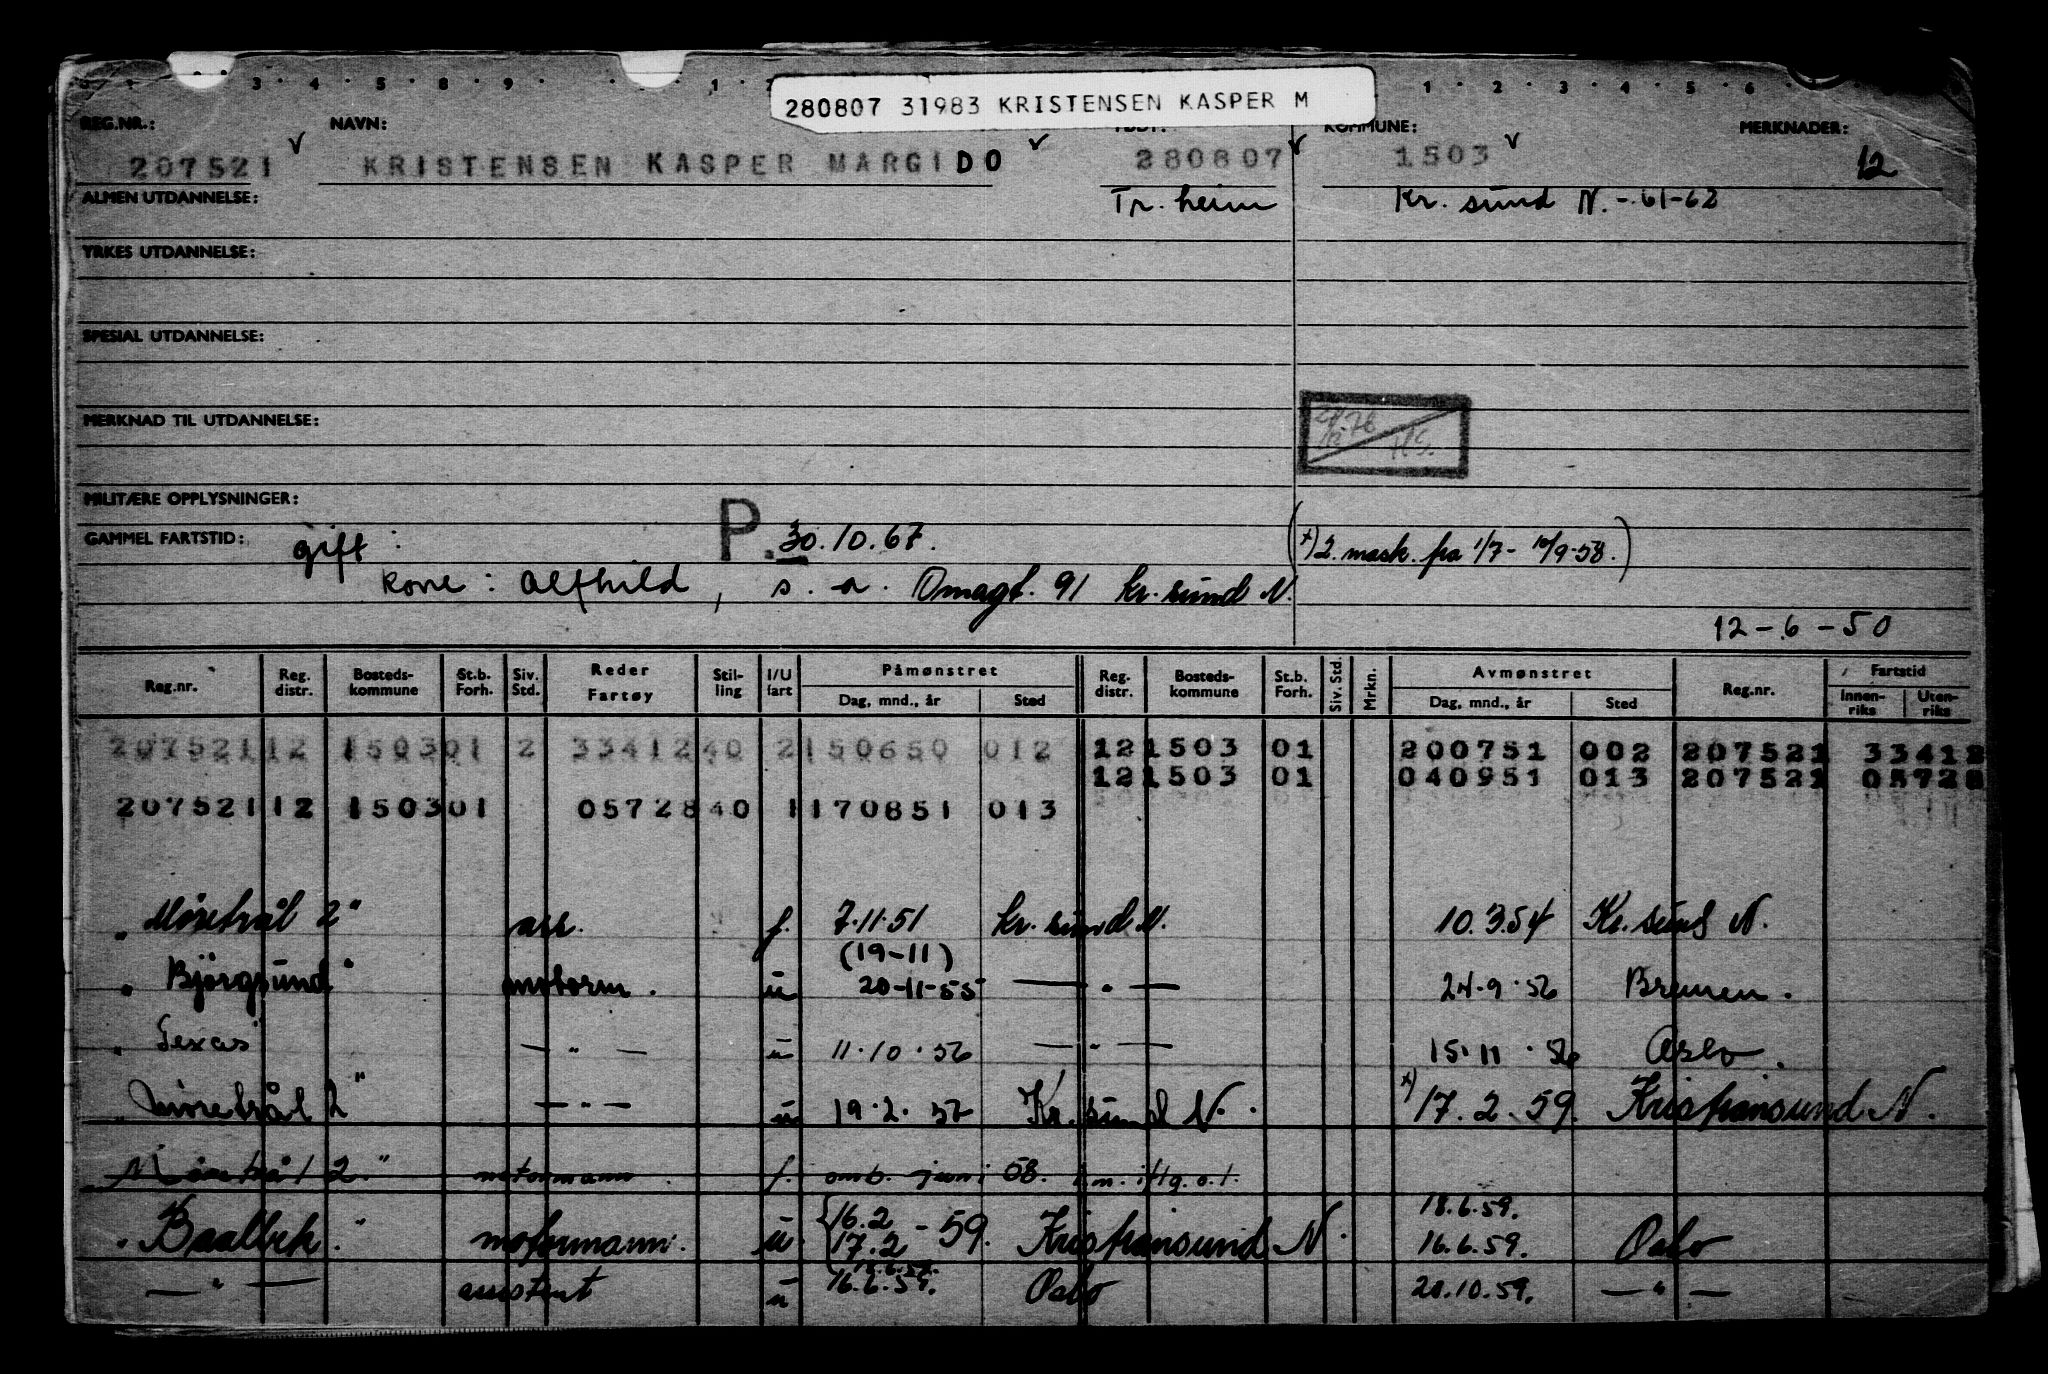 280807 31983 KRISTENSEN KASPER M
REG.NR.: NAVN: KOMMUNE: MERKNADER:
207521 KRISTENSEN KASPER MARGIDO 280807 1503 12
ALMEN UTDANNELSE: Tr. heim Kr. sund N. - 61-62
YRKES UTDANNELSE:
SPESIAL UTDANNELSE:
MERKNAD TIL UTDANNELSE:
MILITÆRE OPPLYSNINGER:
GAMMEL FARTSTID: gift : P. 30.10.67. (x) 2. mask. fra 1/7 - 10/9-58.)
kone : Alfhild, s. a. Omagt. 91 Kr. sund N.
12-6-50
Reg.nr. Reg. distr. Bosteds-kommune St.b. Forh. Siv. Std. Reder Fartøy Stil-ling I/U fart Påmønstret Dag, mnd., år Sted Reg. distr. Bosteds-kommune St.b. Forh. Siv. Std. Mrkn. Avmønstret Dag, mnd., år Sted Reg.nr. Fartstid Innen-riks Uten-riks
207521 12 1503 01 2 33412 40 2 150650 012 12 1503 01 200751 002 207521 33412
12 1503 01 040951 013 207521 05728
207521 12 1503 01 05728 40 1 170851 013
"Møretrål 2" ass. f. 7.11.51 Kr. sund N. 10.3.54 Kr. sund N.
(19-11)
"Björgsund" motorm. u 20-11-55 — " — 24.9.56 Bremen.
"Texas" — " — u 11.10.56 — " — 15.11.56 Oslo.
"Møretrål 2" — " — u 19.2.57 Kr. sund N. x) 17.2.59. Kristiansund N.
"Møretrål 2" motormann f. omb. juni 58.
"Baalbek" motormann. u. {16.2 17.2 - 59. Kristiansund N. 18.6.59. 16.6.59. Oslo
— " — assistent u 16.6.59. Oslo 20.10.59. — " —